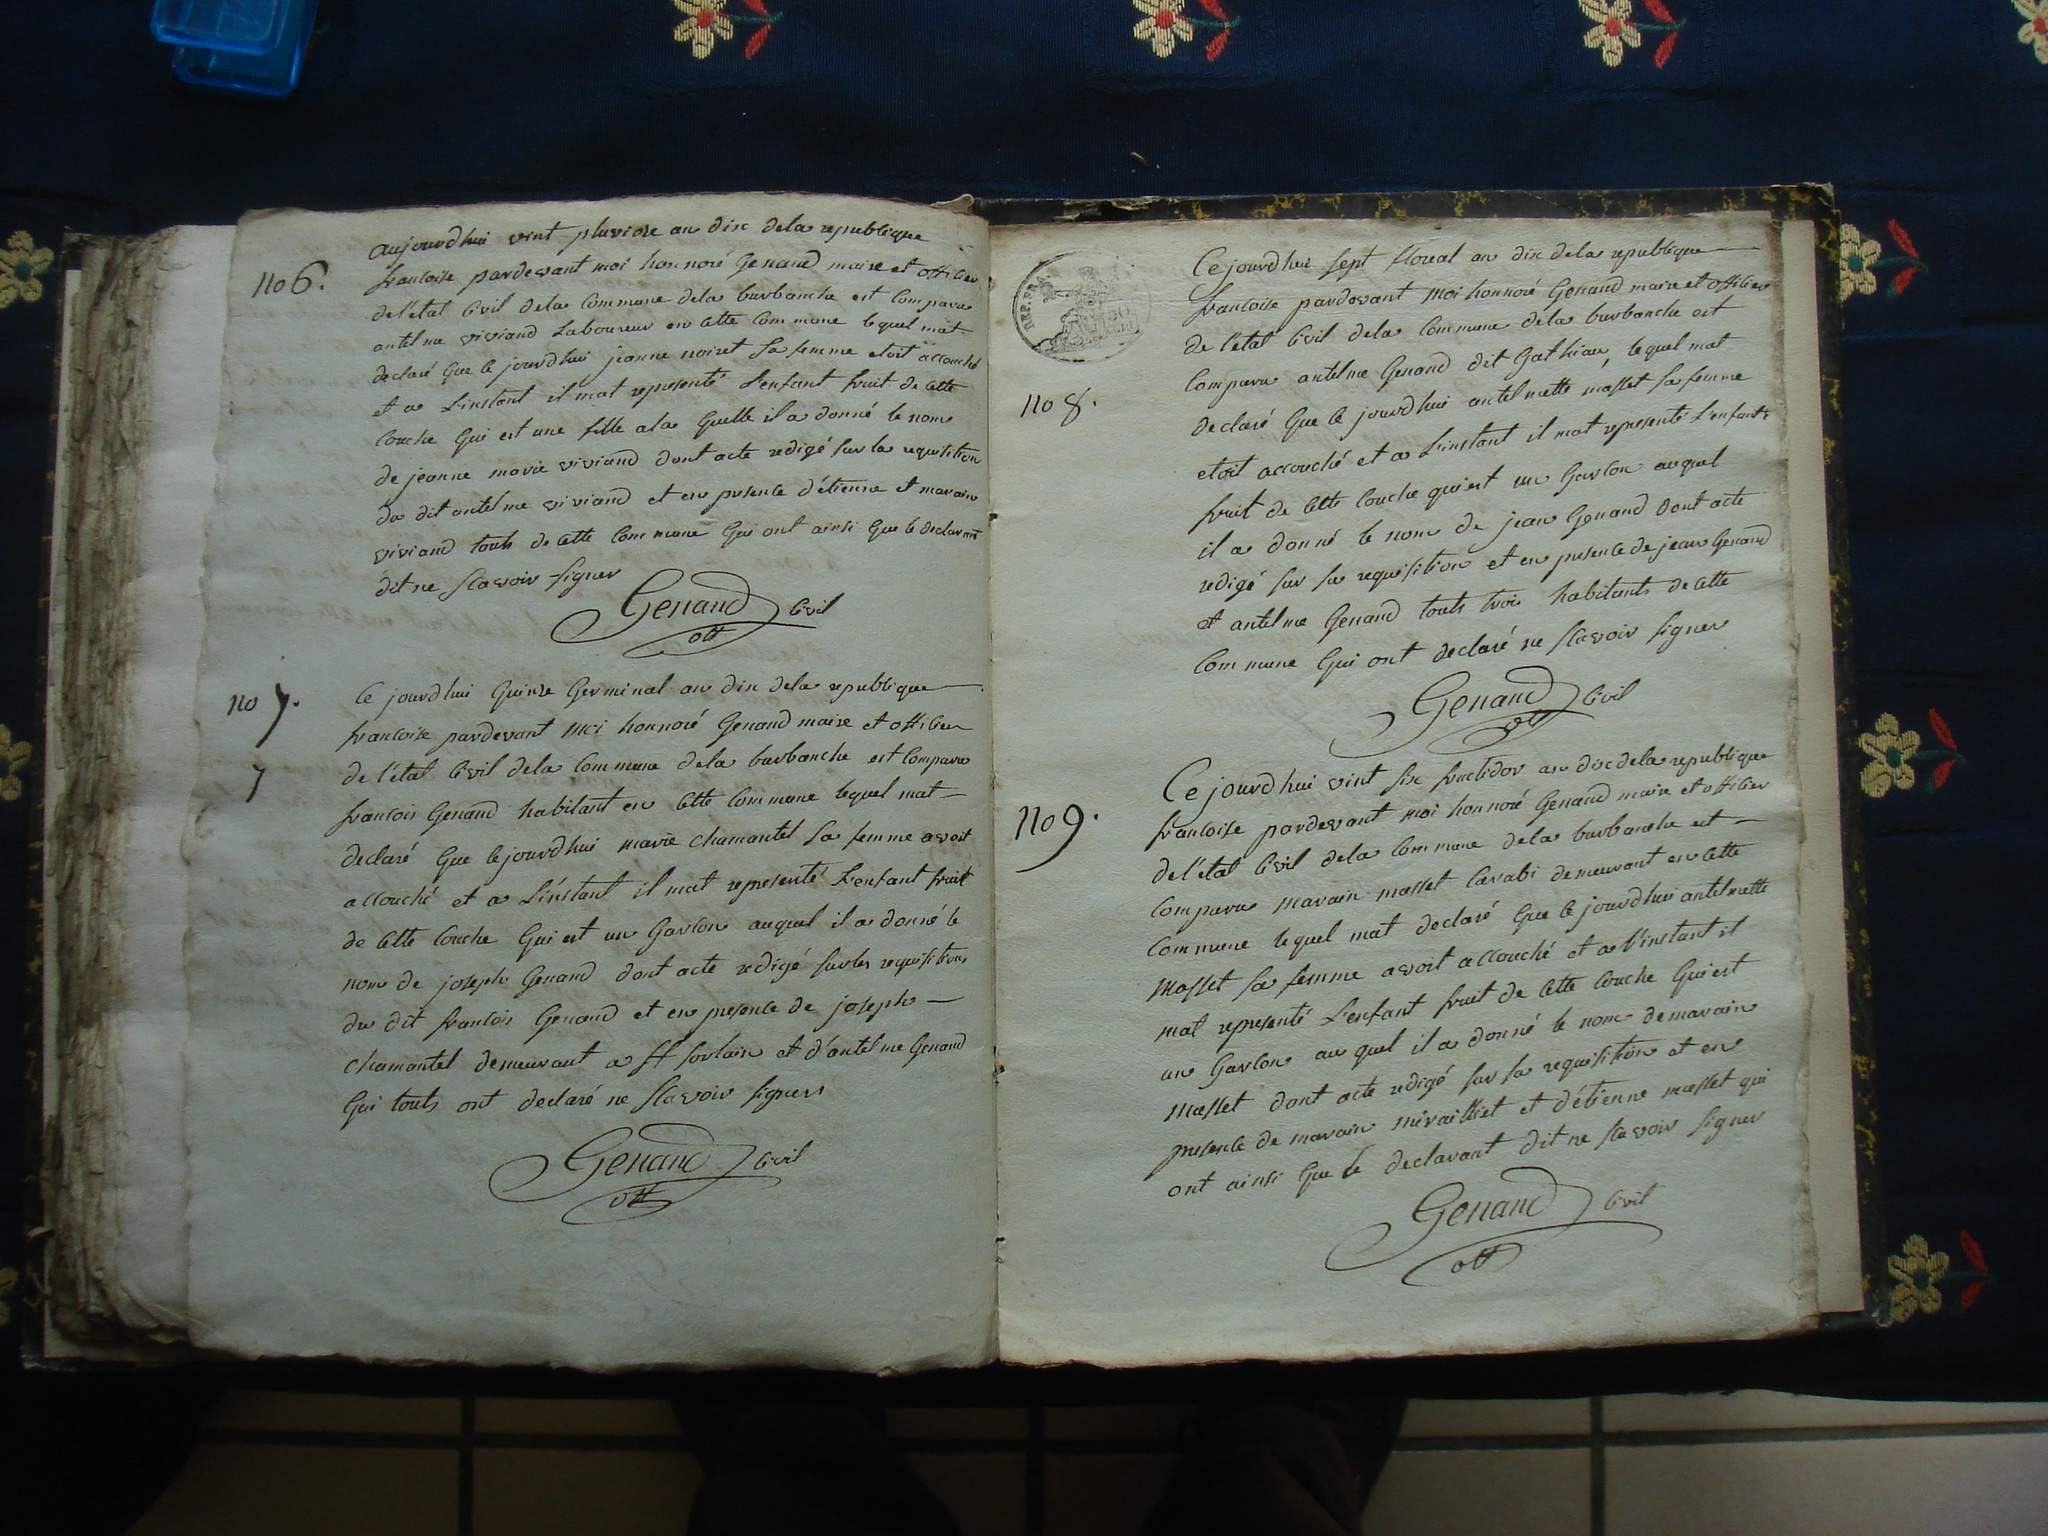 no 6.
aujourdhui vint pluviose an dix dela republique
francoise pardevant moi honnoré Genand maire et officier
de l'état Civil dela Commune dela burbanche est Comparu
antelme viviand Laboureur en Cette Commune lequel mat
declaré que ce jourdhui jeanne noiret sa femme etoit accouché
et a L'instant il mat representé L'enfant fruit de Cette
Couche qui est une fille ala quelle il a donné le nom
de jeanne marie viviand dont acte redigé sur la requisition
du dit antelme viviand et en presence d'étienne et marain
viviand touts de Cette Commune qui ont ainsi que le declarant
dit ne scavoir signer
Genand Civil
off
no 7.
7
Ce jourdhui quinze Germinal an dix dela republique
francoise pardevant moi honnoré Genand maire et officier
de l'état Civil dela Commune dela burbanche est Comparu
francois Genand habitant en Cette Commune lequel mat
declaré que cejourdhui marie chamantel sa femme avoit
accouché et a L'instant il mat representé L'enfant fruit
de Cette Couche qui est un Garcon auquel il a donné le
nom de joseph Genand dont acte redigé sur les requisitions
du dit francois Genand et en presence de joseph
chamantel demeurant a st sorlain et d'antelme Genand
qui touts ont declaré ne scavoir signers
Genand Civil
off
REP. FRA.
no 8.
Ce jourdhui sept floreal an dix dela republique
francoise pardevant moi honnoré Genand maire et officier
de l'état Civil dela Commune dela burbanche est
Comparu antelme Genand dit Gathian, lequel mat
declaré que ce jourdhui antelmette masset sa femme
etoit accouché et a L'instant il mat representé L'enfant
fruit de Cette Couche quiest un Garcon auquel
il a donné le nom de jean Genand dont acte
redigé sur sa requisition et en presence de jean Genand
et antelme Genand touts trois habitants de Cette
Commune qui ont declaré ne scavoir signer
Genand Civil
off
no 9.
Ce jourdhui vint six fructidor an dix dela republique
francoise pardevant moi honnoré Genand maire et officier
de l'état Civil dela Commune dela burbanche est
Comparu marain masset Carabi demeurant en Cette
Commune lequel mat declaré que ce jourdhui antelmette
masset sa femme avoit accouché et a l'instant il
mat representé L'enfant fruit de Cette Couche qui est
un Garcon au quel il a donné le nom de marain
masset dont acte redigé sur sa requisition et en
presence de marain miraillet et d'étienne masset qui
ont ainsi que le declarant dit ne scavoir signer
Genand Civil
off